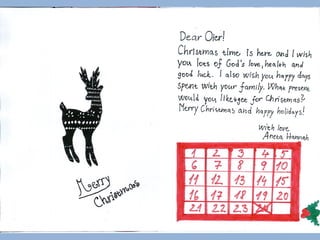 Merry
Christmas
Dear Oier!
Christmas time is here and I wish
you lots of God's love, health and
good luck. I also wish you happy days
spent with your family. What present
would you like to get for Christmas?
Merry Christmas and happy holidays!
With love
Aneta Hannah
1 2 3 4 5
6 7 8 9 10
11 12 13 14 15
16 17 18 19 20
21 22 23 24